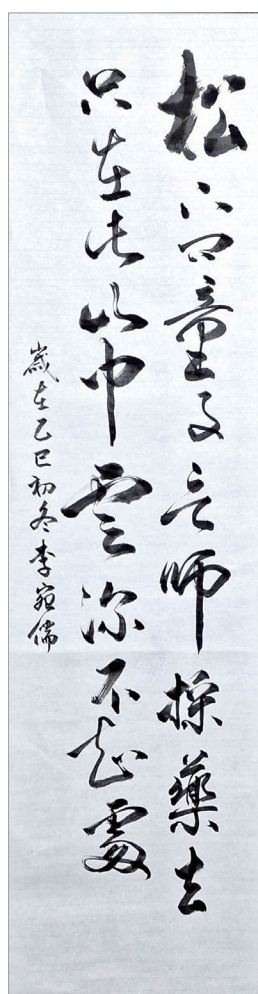 松下問童子言師採藥去
只在此山中雲深不知處
歲在乙巳初冬李宛儒